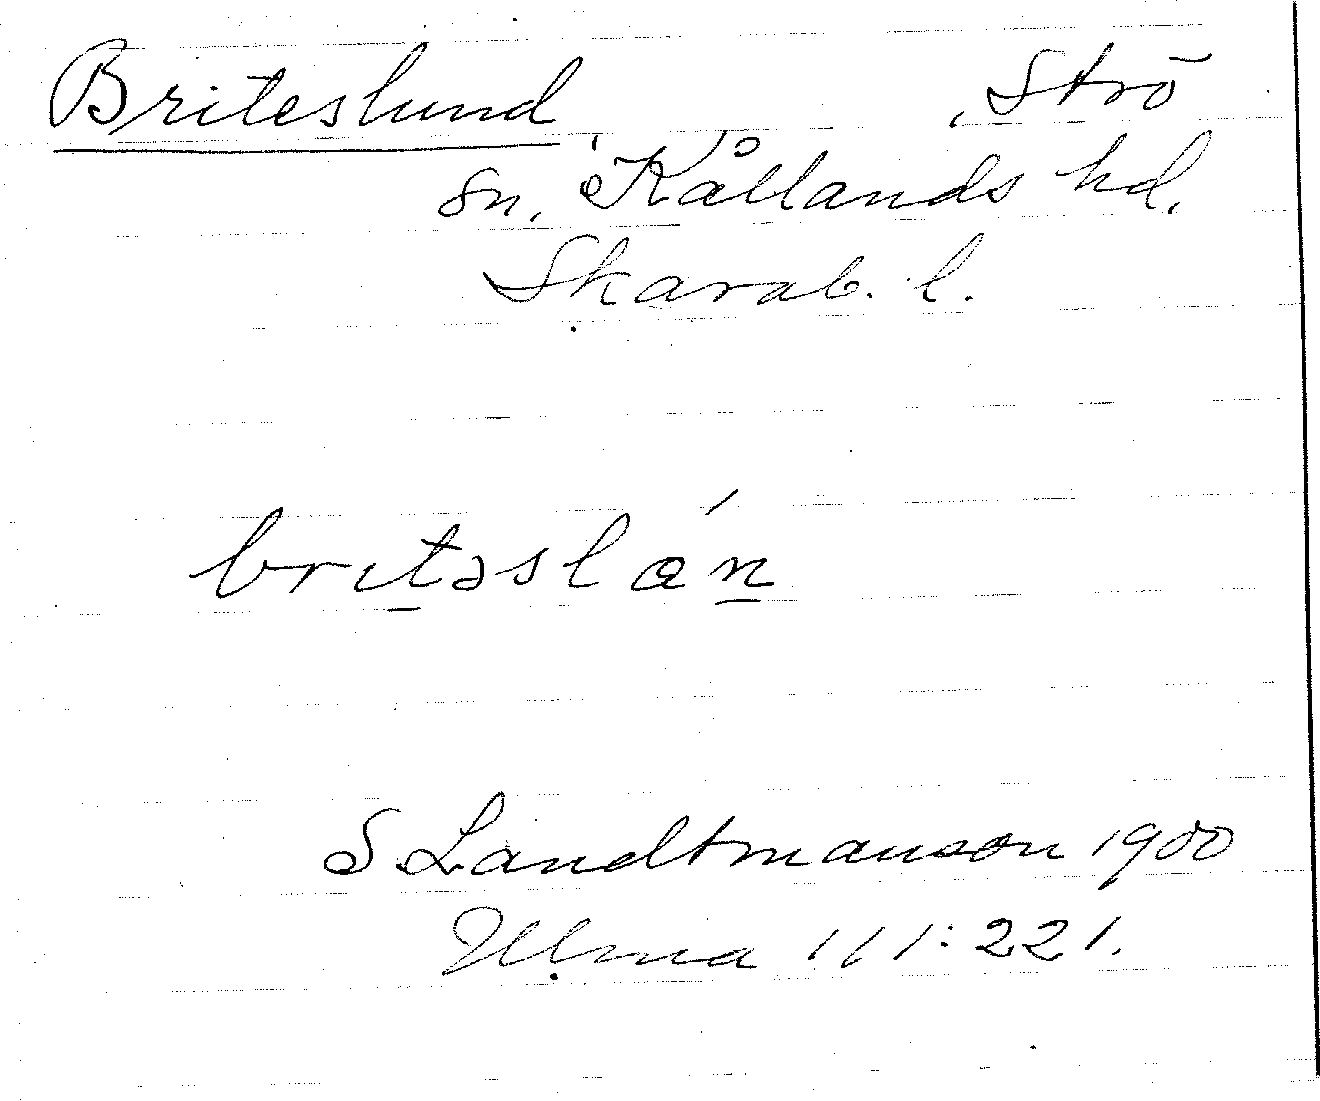 Briteslund, Strö
sn, Kållands hd,
Skarab. l.
britəslǿn
S. Landtmanson 1900
Ulma 111:221.